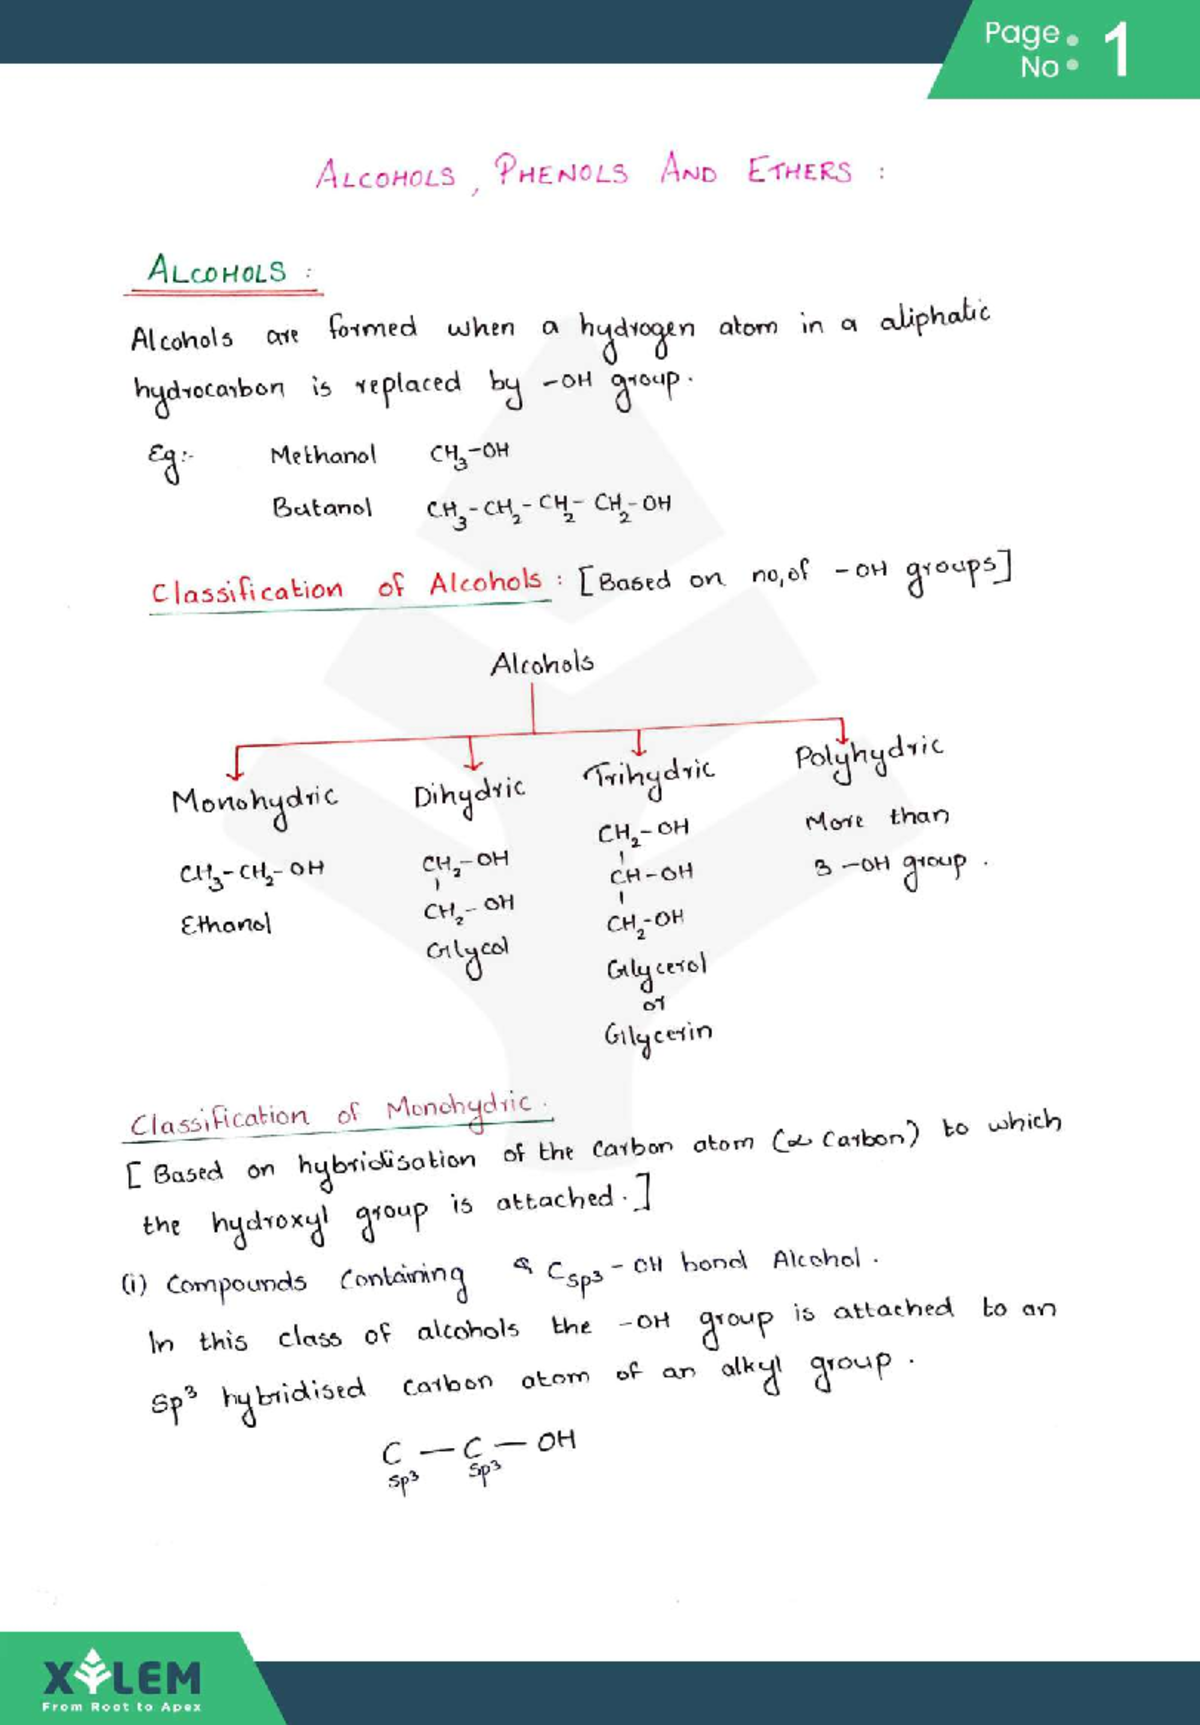 Page No : 1
ALCOHOLS, PHENOLS AND ETHERS :
ALCOHOLS :
Alcohols are formed when a hydrogen atom in a aliphatic
hydrocarbon is replaced by -OH group.
Eg:- Methanol CH₃-OH
Butanol CH₃-CH₂-CH₂-CH₂-OH
Classification of Alcohols : [Based on no,of -OH groups]
Alcohols
Monohydric Dihydric Trihydric Polyhydric
CH₃-CH₂-OH
Ethanol
CH₂-OH
CH₂-OH
Glycol
CH₂-OH
CH-OH
CH₂-OH
Glycerol
or
Glycerin
More than
3 -OH group.
Classification of Monohydric.
[Based on hybridisation of the carbon atom (α Carbon) to which
the hydroxyl group is attached.]
(i) Compounds Containing C sp3 - OH bond Alcohol.
In this class of alcohols the -OH group is attached to an
Sp³ hybridised carbon atom of an alkyl group.
C - C - OH
Sp³ Sp³
XYLEM
From Root to Apex